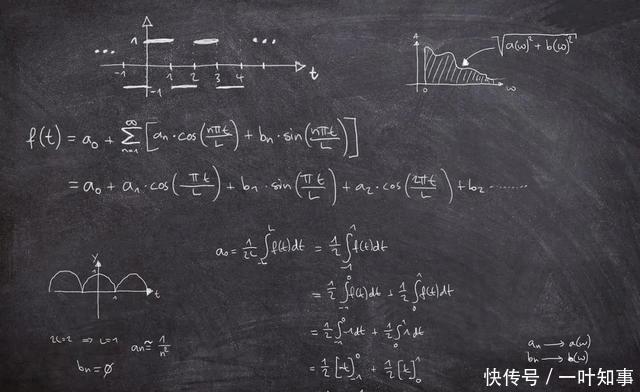 1
... ...
-1 1 2 3 4 t
-1
A
√(a(ω)² + b(ω)²)
0 ω
f(t) = a₀ + ∑ₙ₌₁^∞ [aₙ·cos(nπt/L) + bₙ·sin(nπt/L)]
= a₀ + a₁·cos(πt/L) + b₁·sin(πt/L) + a₂·cos(2πt/L) + b₂........
a₀ = 1/2L ∫₋L^L f(t)dt = 1/2 ∫₋₁^1 f(t)dt
= 1/2 ∫₋₁^0 f(t)dt + 1/2 ∫₀^1 f(t)dt
= 1/2 ∫₋₁^0 -1dt + 1/2 ∫₀^1 1dt
= 1/2 [-t]₋₁^0 + 1/2 [t]₀^1
y
1 t
2L=2 ⇒ L=1
aₙ ≅ 1/n²
bₙ = 0
aₙ → a(ω)
bₙ → b(ω)
快传号/一叶知事